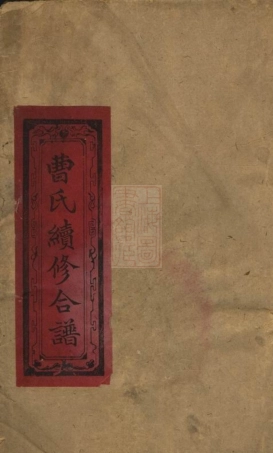 曹氏續修合譜